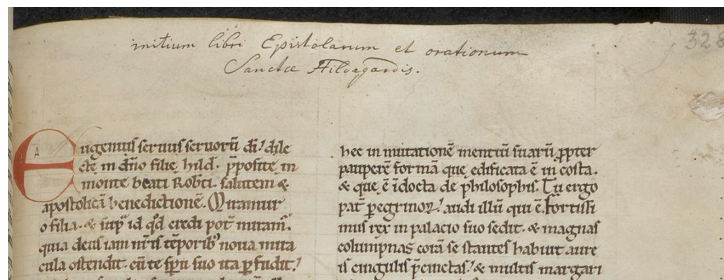 initium libri Epistolarum et orationum
Sanctæ Hildegardis.
328
Eugenius seruus seruorū di᷎ dile
cte in dño filie hild. p̄posite in
monte beati Robti. salutem &
apostolicā benedictionē. Miramur
o filia. & sup̄ id qd̄ credi pot̄ miram᷎.
quia deus iam nr̄is tēporib᷎ noua mira
cula ostendit. cū te sp̄u suo ita p̄fudit.
hec in mutationē mentiū suarū ꝓpter
paupere formā que edificata ē in costa.
& que ē īdocta de philosophis. Tu ergo
pat᷎ pegrinor᷎. audi illū qui ē. fortissi
mus rex in palacio suo sedit. & magnas
columpnas corā se stantes habuit aure
is cingulis p̄cinctas. & multis margari